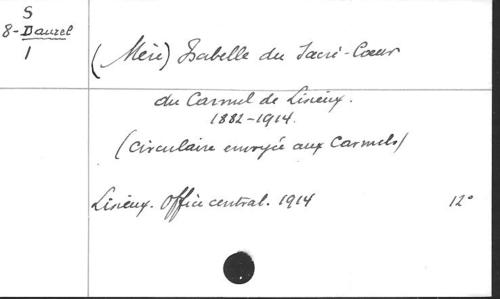 S
8-Daurel
1
(Mère) Isabelle du Sacré-Coeur
du Carmel de Lisieux.
1882-1914.
(Circulaire envoyée aux Carmels)
Lisieux. Office central. 1914 12°